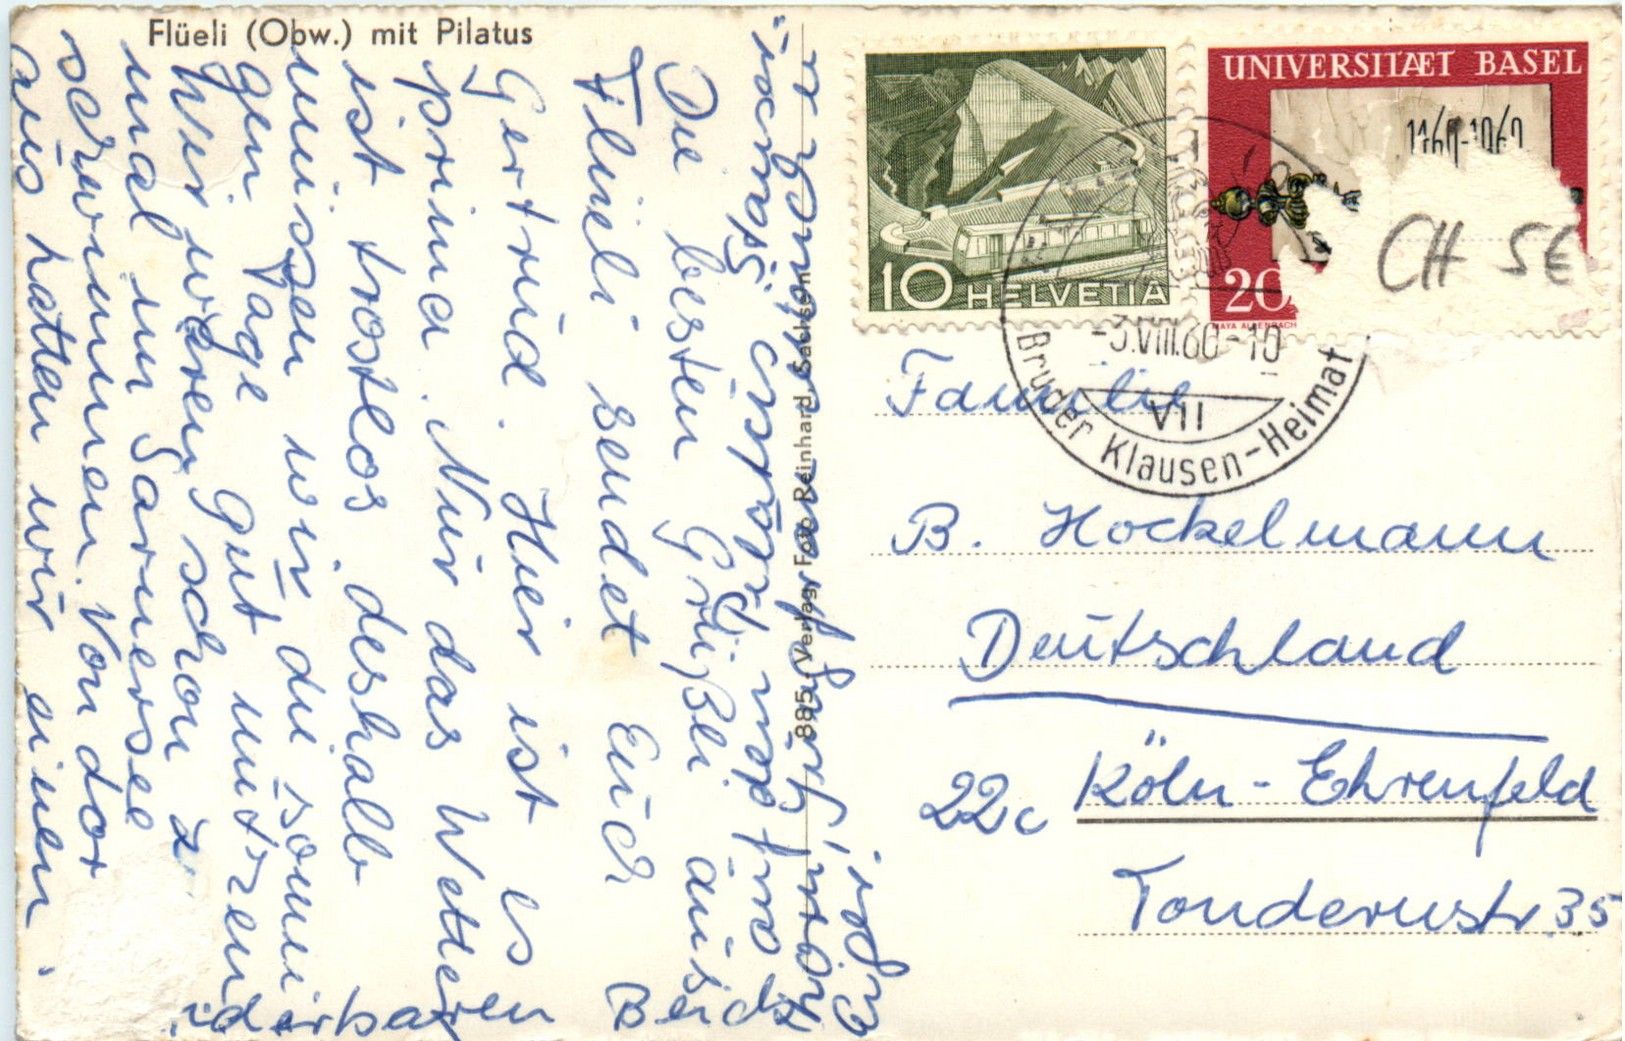 Flüeli (Obw.) mit Pilatus
Die besten Grüße aus
Flüeli sendet Euch
Gertrud. Hier ist es
prima. Nur das Wetter
ist trostlos, deshalb
müssen wir die sonni
gen Tage gut nutzen
Wir waren schon 2
mal im Sarnersee
schwimmen. Von dor
aus hatten wir einen
derbaren Berich
885 Verlag Foto Reinhard, Sachseln
UNIVERSITÆT BASEL
1460-1960
20
10 HELVETIA
-3.VIII.60-10
VII
Bruder Klausen-Heimat
CH 5€
Familie
B. Hockelmann
Deutschland
22c Köln-Ehrenfeld
Tondernstr. 35